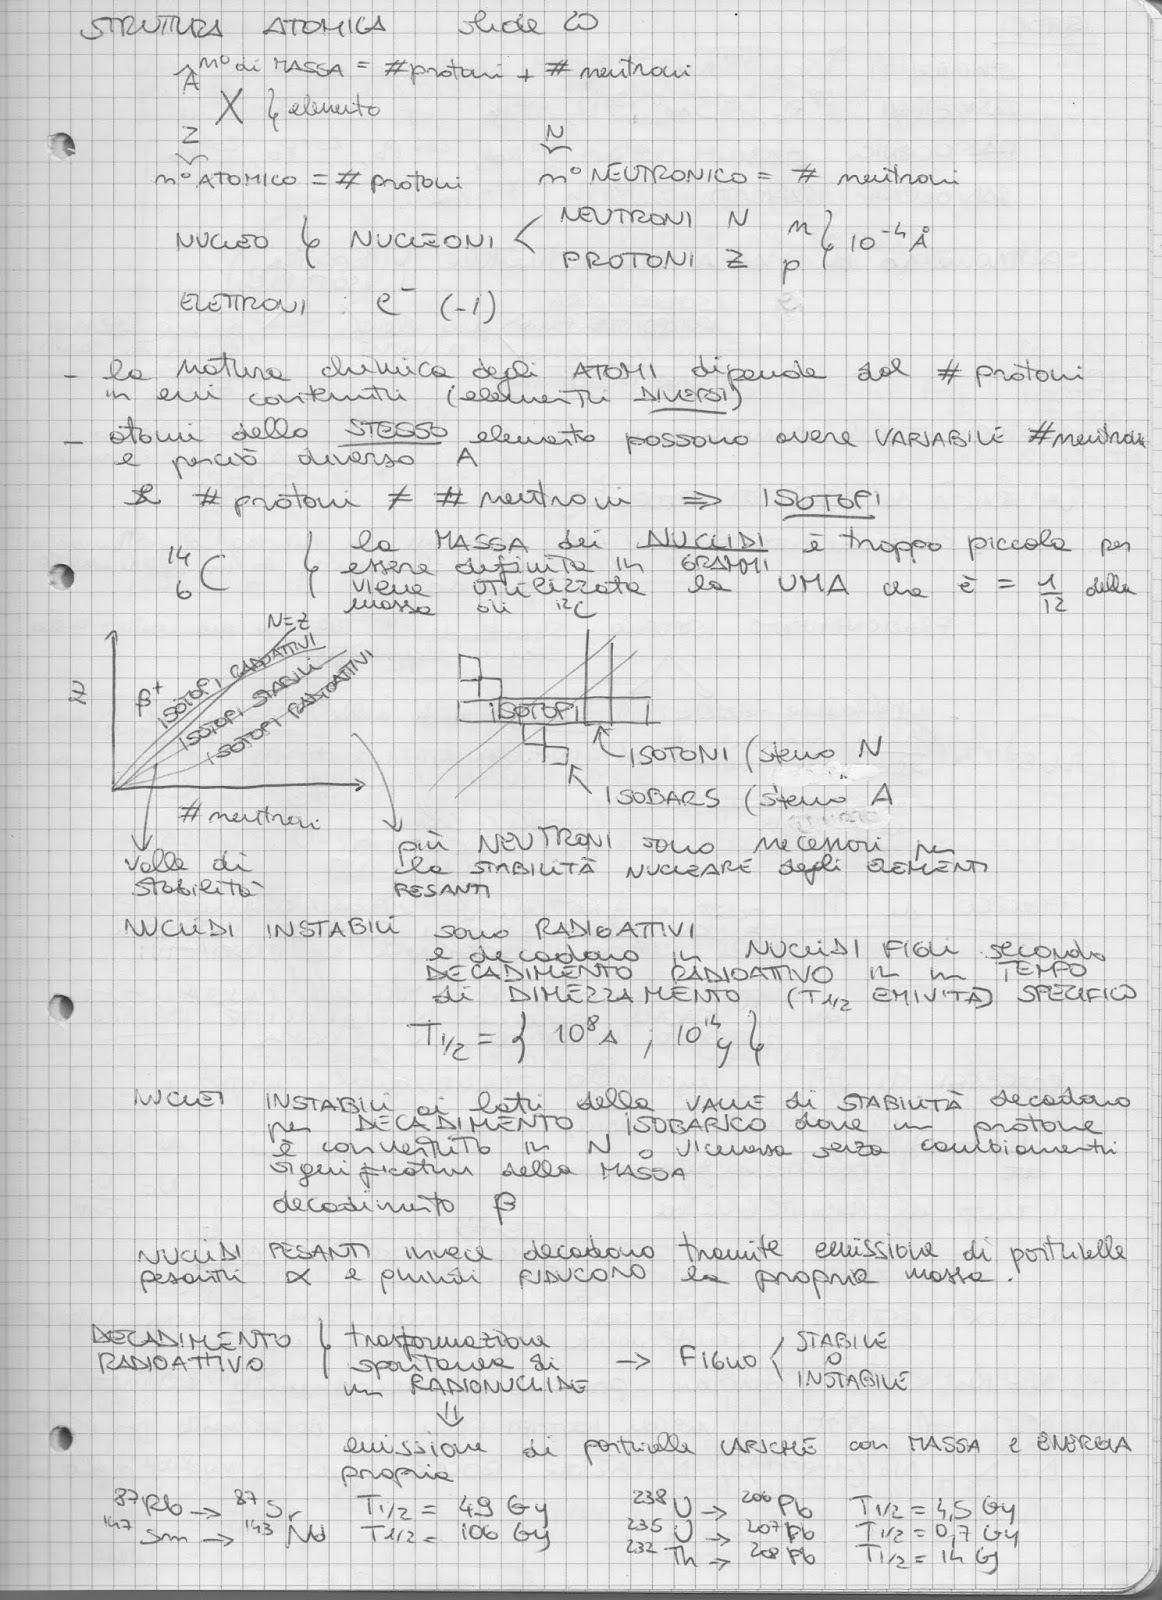 STRUTTURA ATOMICA slide
n° di MASSA = # protoni + # neutroni
A
X elemento
Z
N
n° ATOMICO = # protoni
n° NEUTRONICO = # neutroni
NUCLEO NUCLEONI < NEUTRONI N n
PROTONI Z p } 10⁻⁴ Å
ELETTRONI : e⁻ (-1)
- la natura chimica degli ATOMI dipende dal # protoni
in cui contenuti (elementi DIVERSI)
- atomi dello STESSO elemento possono avere VARIABILE # neutroni
e perciò diverso A
# protoni ≠ # neutroni ⇒ ISOTOPI
¹⁴₆C
la MASSA dei NUCLIDI è troppo piccola per
essere definita in GRAMMI
viene utilizzata la UMA che è = 1/12 della
massa di ¹²C
N=Z
Z
β⁺
ISOTOPI RADIOATTIVI
ISOTOPI STABILI
ISOTOPI RADIOATTIVI
# neutroni
valle di
stabilità
ISOTOPI
ISOTONI (stesso N
ISOBARS (stesso A
più NEUTRONI sono necessari per
la STABILITÀ NUCLEARE degli ELEMENTI
PESANTI
NUCLIDI INSTABILI sono RADIOATTIVI
e decadono in NUCLIDI FIGLI secondo
DECADIMENTO RADIOATTIVO in un TEMPO
di DIMEZZAMENTO (T1/2 EMIVITA) SPECIFICO
T1/2 = { 10⁸ s ; 10¹⁴ y }
NUCLEI INSTABILI ai lati della VALLE di STABILITÀ decadono
per DECADIMENTO ISOBARICO dove un protone
è convertito in N o viceversa senza cambiamenti
significativi della MASSA
decadimento β
NUCLIDI PESANTI invece decadono tramite emissione di particelle
pesanti α e quindi RIDUCONO la propria massa.
DECADIMENTO
RADIOATTIVO
trasformazione
spontanea di
un RADIONUCLIDE
→ FIGLIO < STABILE
O
INSTABILE
⇓
emissione di particelle CARICHE con MASSA e ENERGIA
propria
⁸⁷Rb → ⁸⁷Sr T1/2 = 49 Gy
¹⁴⁷Sm → ¹⁴³Nd T1/2 = 106 Gy
²³⁸U → ²⁰⁶Pb T1/2 = 4,5 Gy
²³⁵U → ²⁰⁷Pb T1/2 = 0,7 Gy
²³²Th → ²⁰⁸Pb T1/2 = 14 Gy